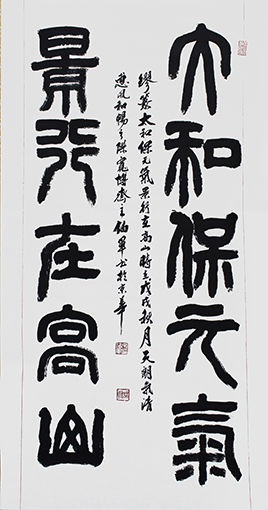 大和保元氣
繆篆太和保元氣景行在高山時在戊戌秋月天朗氣清
惠风和暢之際寬博齋主書於京華
景行在高山